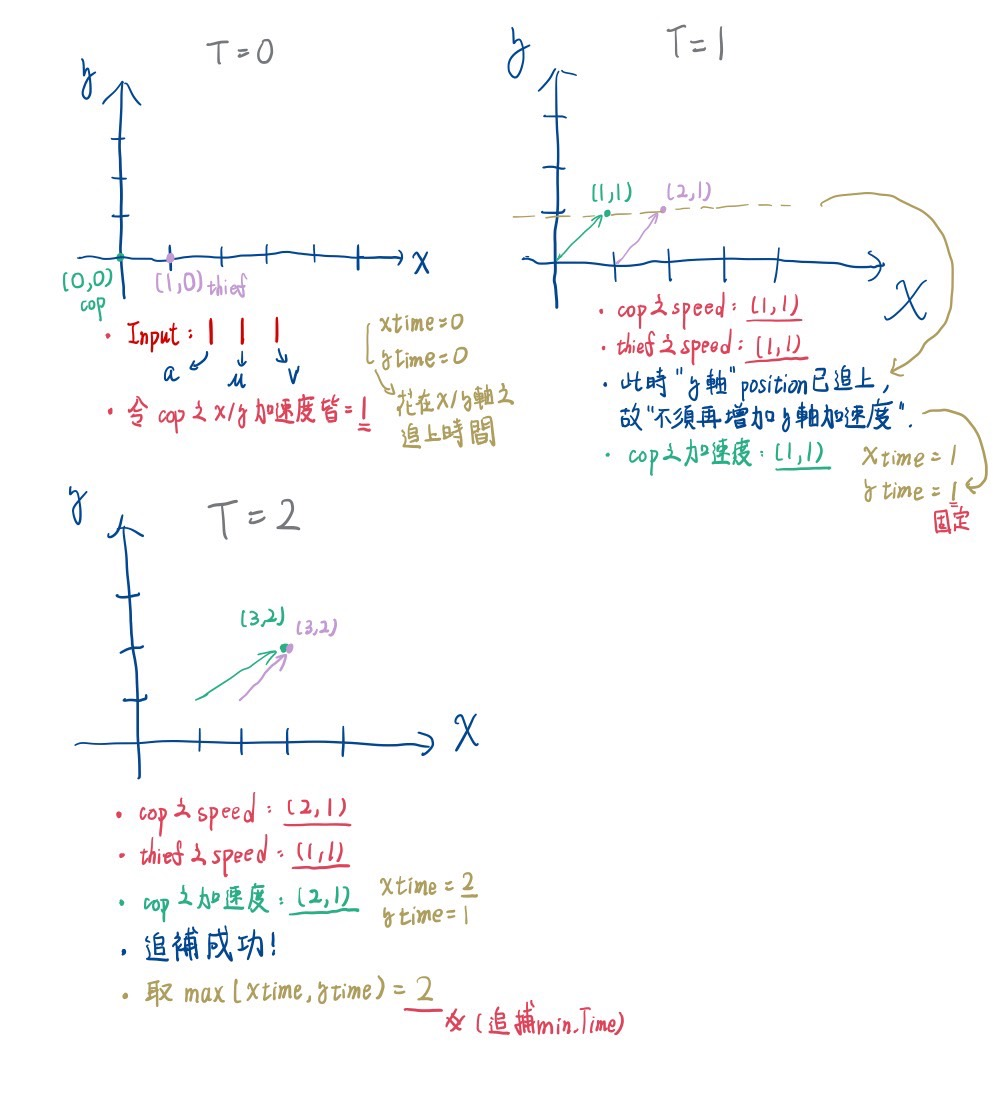 T=0
y
x
(0,0)
cop
(1,0) thief
• Input: 1 1 1
a u v
xtime=0
ytime=0
花在x/y軸之
追上時間
• 令 cop之x/y加速度皆=1
T=1
y
(1,1)
(2,1)
X
• cop之speed: (1,1)
• thief之speed: (1,1)
• 此時"y軸"position已追上,
故"不須再增加y軸加速度".
• cop之加速度: (1,1)
xtime=1
ytime=1
固定
T=2
y
(3,2)
(3,2)
X
• cop之speed: (2,1)
• thief之speed: (1,1)
• cop之加速度: (2,1)
xtime=2
ytime=1
• 追補成功!
• 取 max(xtime,ytime)=2
(追捕min.Time)